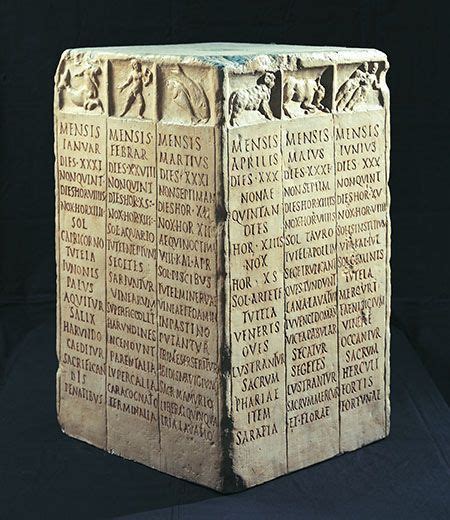 MENSIS
IANVAR
DIES·XXXI
NON·QVINT
DIES·HOR·VIIII
NOX·HOR·XIIII
SOL
CAPRICORNO
TVTELA
IVNONIS
PALVS
AQVITVR
SALIX
HARVNDO
CAEDITVR
SACRIFICAN
DIS
PENATIBVS
MENSIS
FEBRAR
DIES·XXVIII
NON·QVINT
SOL·AQVARIO
TVTEL·NEPTVNI
SEGETES
SARIVNTVR
VINEARVM
SVPERFIC·COLIT
HARVNDINES
INCENDVNT
PARENTALIA
LVPERCALIA
CARA·COGNATIO
TERMINALIA
MENSIS
MARTIVS
DIES·XXXI
NON·SEPTIMAN
DIES·HOR·XII
NOX·HOR·XII
AEQVINOCTIVM
VIII·KAL·APR
SOL·PISCIBVS
TVTEL·MINERVAE
IN·PASTINO
PVTANTVR
SACR·MAMVRIO
LIBERAL·QVINQVA
TRIA·LAVATIO
MENSIS
APRILIS
DIES·XXX
NONAE
QVINTAN
DIES
HOR·XIIIS
NOX
HOR·XS
SOL·ARIETE
TVTELA
VENERIS
OVES
LVSTRANTVR
SACRVM
PHARIAE
ITEM
SARAPIA
MENSIS
MAIVS
DIES·XXXI
NON·SEPTIM
DIES·HOR·XIIIIS
NOX·HOR·VIIIIS
SOL·TAVRO
TVTEL·APOLLIN
SEGET·RVNCANT
OVES·TONDENT
LANA·LAVATVR
IVVENCI·DOMANT
VICEA·PABVLAR
SECATVR
SEGETES
LVSTRANTVR
SACRVM·MERCVR
ET·FLORAE
MENSIS
IVNIVS
DIES·XXX
NON·QVINT
DIES·HOR·XV
NOX·HOR·VIIII
SOLIS·INSTITIVM
VIII·KAL·IVL
SOL·GEMINIS
TVTELA
MERCVRI
FAENISICIVM
VINEAE
OCCANTVR
SACRVM
HERCVLI
FORTIS
FORTVNAE